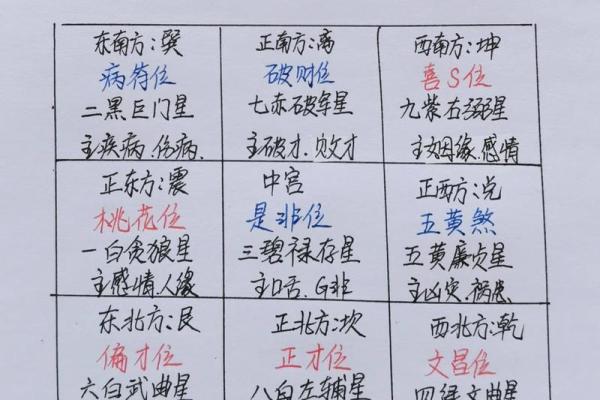 东南方:巽
病符位
二黑巨门星
主疾病.伤病.
正南方:离
破财位
七赤破军星
主破才.败才
西南方:坤
喜S位
九紫右弼星
主姻缘.感情
正东方:震
桃花位
一白贪狼星
主感情.人缘
中宫
是非位
三碧禄存星
主口舌.G非
正西方:兑
五黄煞
五黄廉贞星
主凶灾.祸患
东北方:艮
偏才位
六白武曲星
正北方:坎
正才位
八白左辅星
西北方:乾
文昌位
四绿文曲星